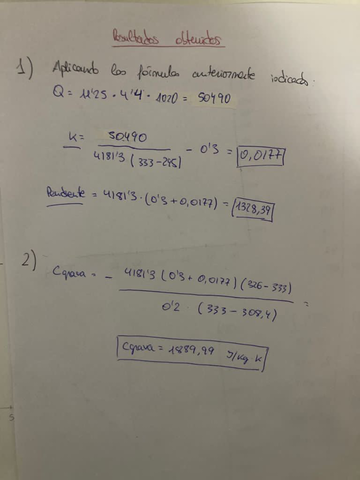 Resultados obtenidos
1) Aplicando las fórmulas anteriormente indicadas.
Q = 11'25 · 4'4 · 1020 = 50490
K = 50490 / 4181'3 (333-295) - 0'3 = 0,0177
Pendiente = 4181'3 · (0'3 + 0,0177) = 1328,39
2)
Cgrava = - 4181'3 (0'3 + 0,0177) (326-333) / 0'2 · (333-308,4) =
Cgrava = 1889,99 J/kg K